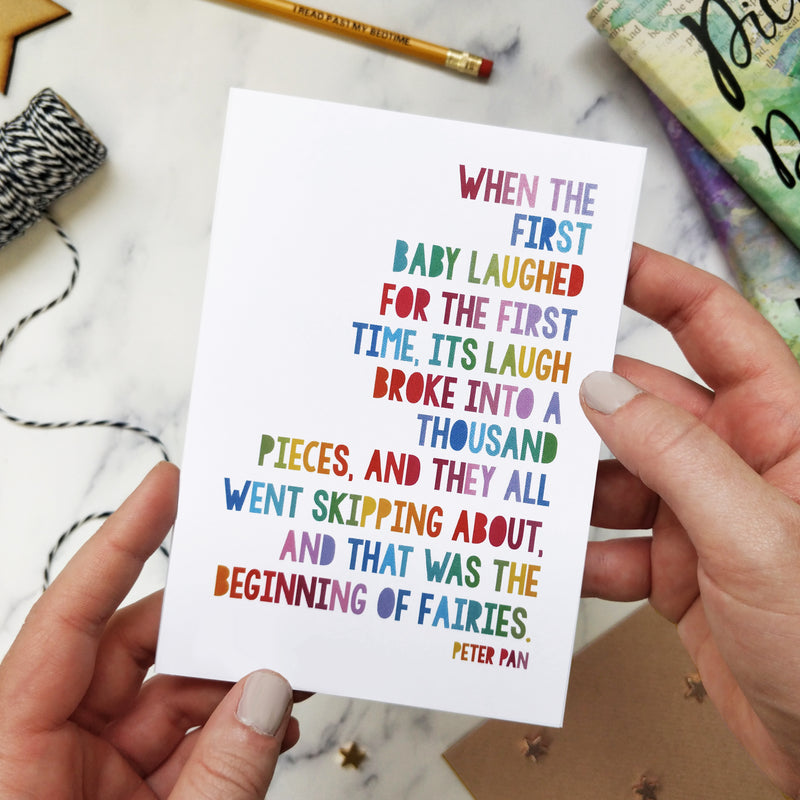 I READ PAST MY BEDTIME
WHEN THE
FIRST
BABY LAUGHED
FOR THE FIRST
TIME, ITS LAUGH
BROKE INTO A
THOUSAND
PIECES, AND THEY ALL
WENT SKIPPING ABOUT,
AND THAT WAS THE
BEGINNING OF FAIRIES.
PETER PAN